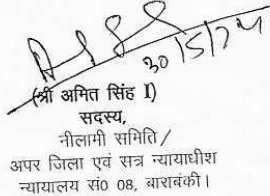 30/5/24
(श्री अमित सिंह I)
सदस्य,
नीलामी समिति/
अपर जिला एवं सत्र न्यायाधीश
न्यायालय सं0 08, बाराबंकी।